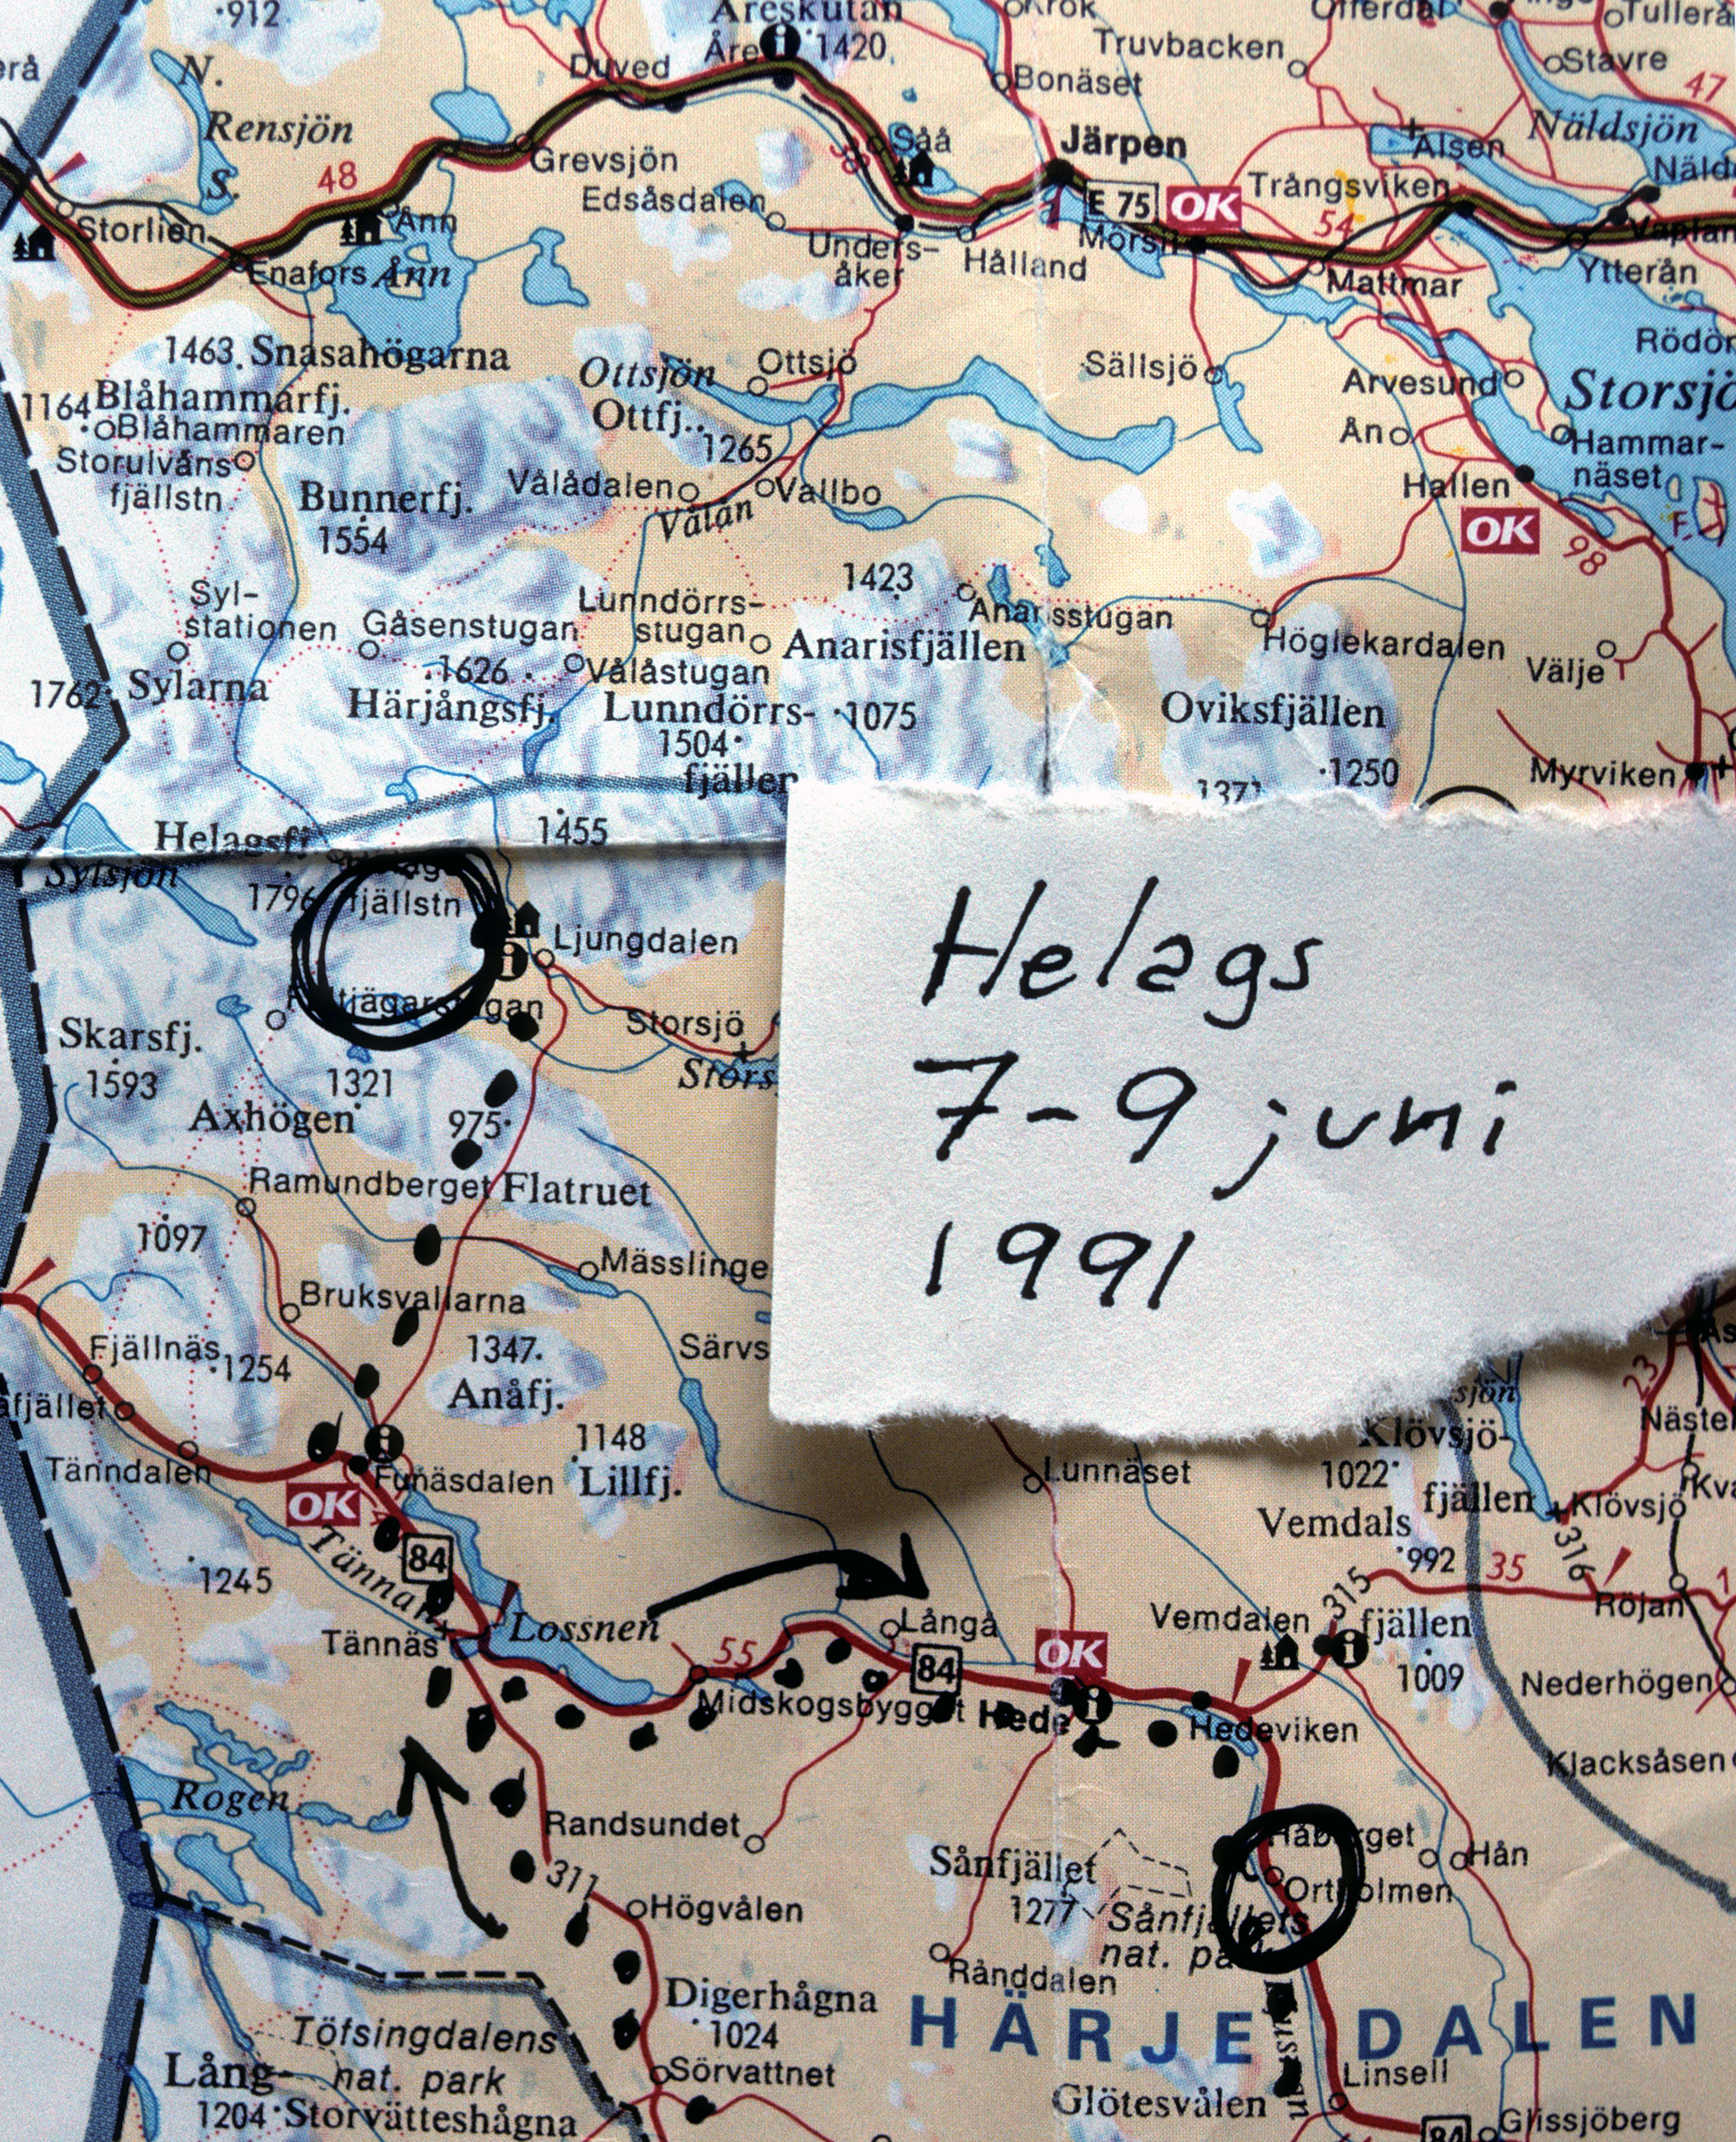 912
Åreskutan
Krök
Offerdal
Tullerå
Åre 1420
Truvbacken
Duved
Bonäset
Stavre
47
N.
Rensjön
S.
48
Grevsjön
Såå
Järpen
Alsen
Näldsjön
Edsåsdalen
E 75
OK
Trångsviken
54
Storlien
Ånn
Enafors
Ånn
Unders-
åker
Hålland
Mörsil
Mattmar
Ytterån
1463 Snasahögarna
Ottsjön
Ottsjö
Sällsjö
Rödön
1164 Blåhammarfj.
Blåhammaren
Ottfj.
1265
Arvesund
Storsjö
Storulvåns
fjällstn
Åno
Hammar-
näset
Bunnerfj.
1554
Vålådalen
Vallbo
Vålån
Hallen
OK
98
Syl-
stationen
Gåsenstugan
Lunndörrs-
stugan
1423
Anarisstugan
Anarisfjällen
Höglekardalen
Välje
1762 Sylarna
1626
Vålåstugan
Härjångsfj.
Lunndörrs-
1504
fjällen
1075
Oviksfjällen
1371
1250
Myrviken
Helagsfj.
1455
Sylsjön
1796
fjällstn
Ljungdalen
Helags
7-9 juni
1991
Skarsfj.
1593
1321
Storsjö
Axhögen
975
Ramundberget
Flatruet
1097
Mässlinge
Bruksvallarna
Fjällnäs
1254
1347
Anåfj.
Särvs
Tänndalen
Funäsdalen
1148
Lillfj.
Lunnäset
Klövsjö-
fjällen
1022
Klövsjö
23
OK
84
1245
Tännan
Vemdals
992
315
35
316
Röjan
Tännäs
Lossnen
55
Långå
84
OK
Vemdalen
fjällen
1009
Nederhögen
Midskogsbygget
Hede
Hedeviken
Klacksåsen
Rogen
Randsundet
311
Högvålen
Sånfjället
1277
Sånfjällets
nat. park
Håberget
Hån
Ortholmen
Rånddalen
Digerhågna
1024
HÄRJEDALEN
Töfsingdalens
nat. park
Lång-
1204 Storvätteshågna
Sörvattnet
Glötesvålen
Linsell
84
Glissjöberg